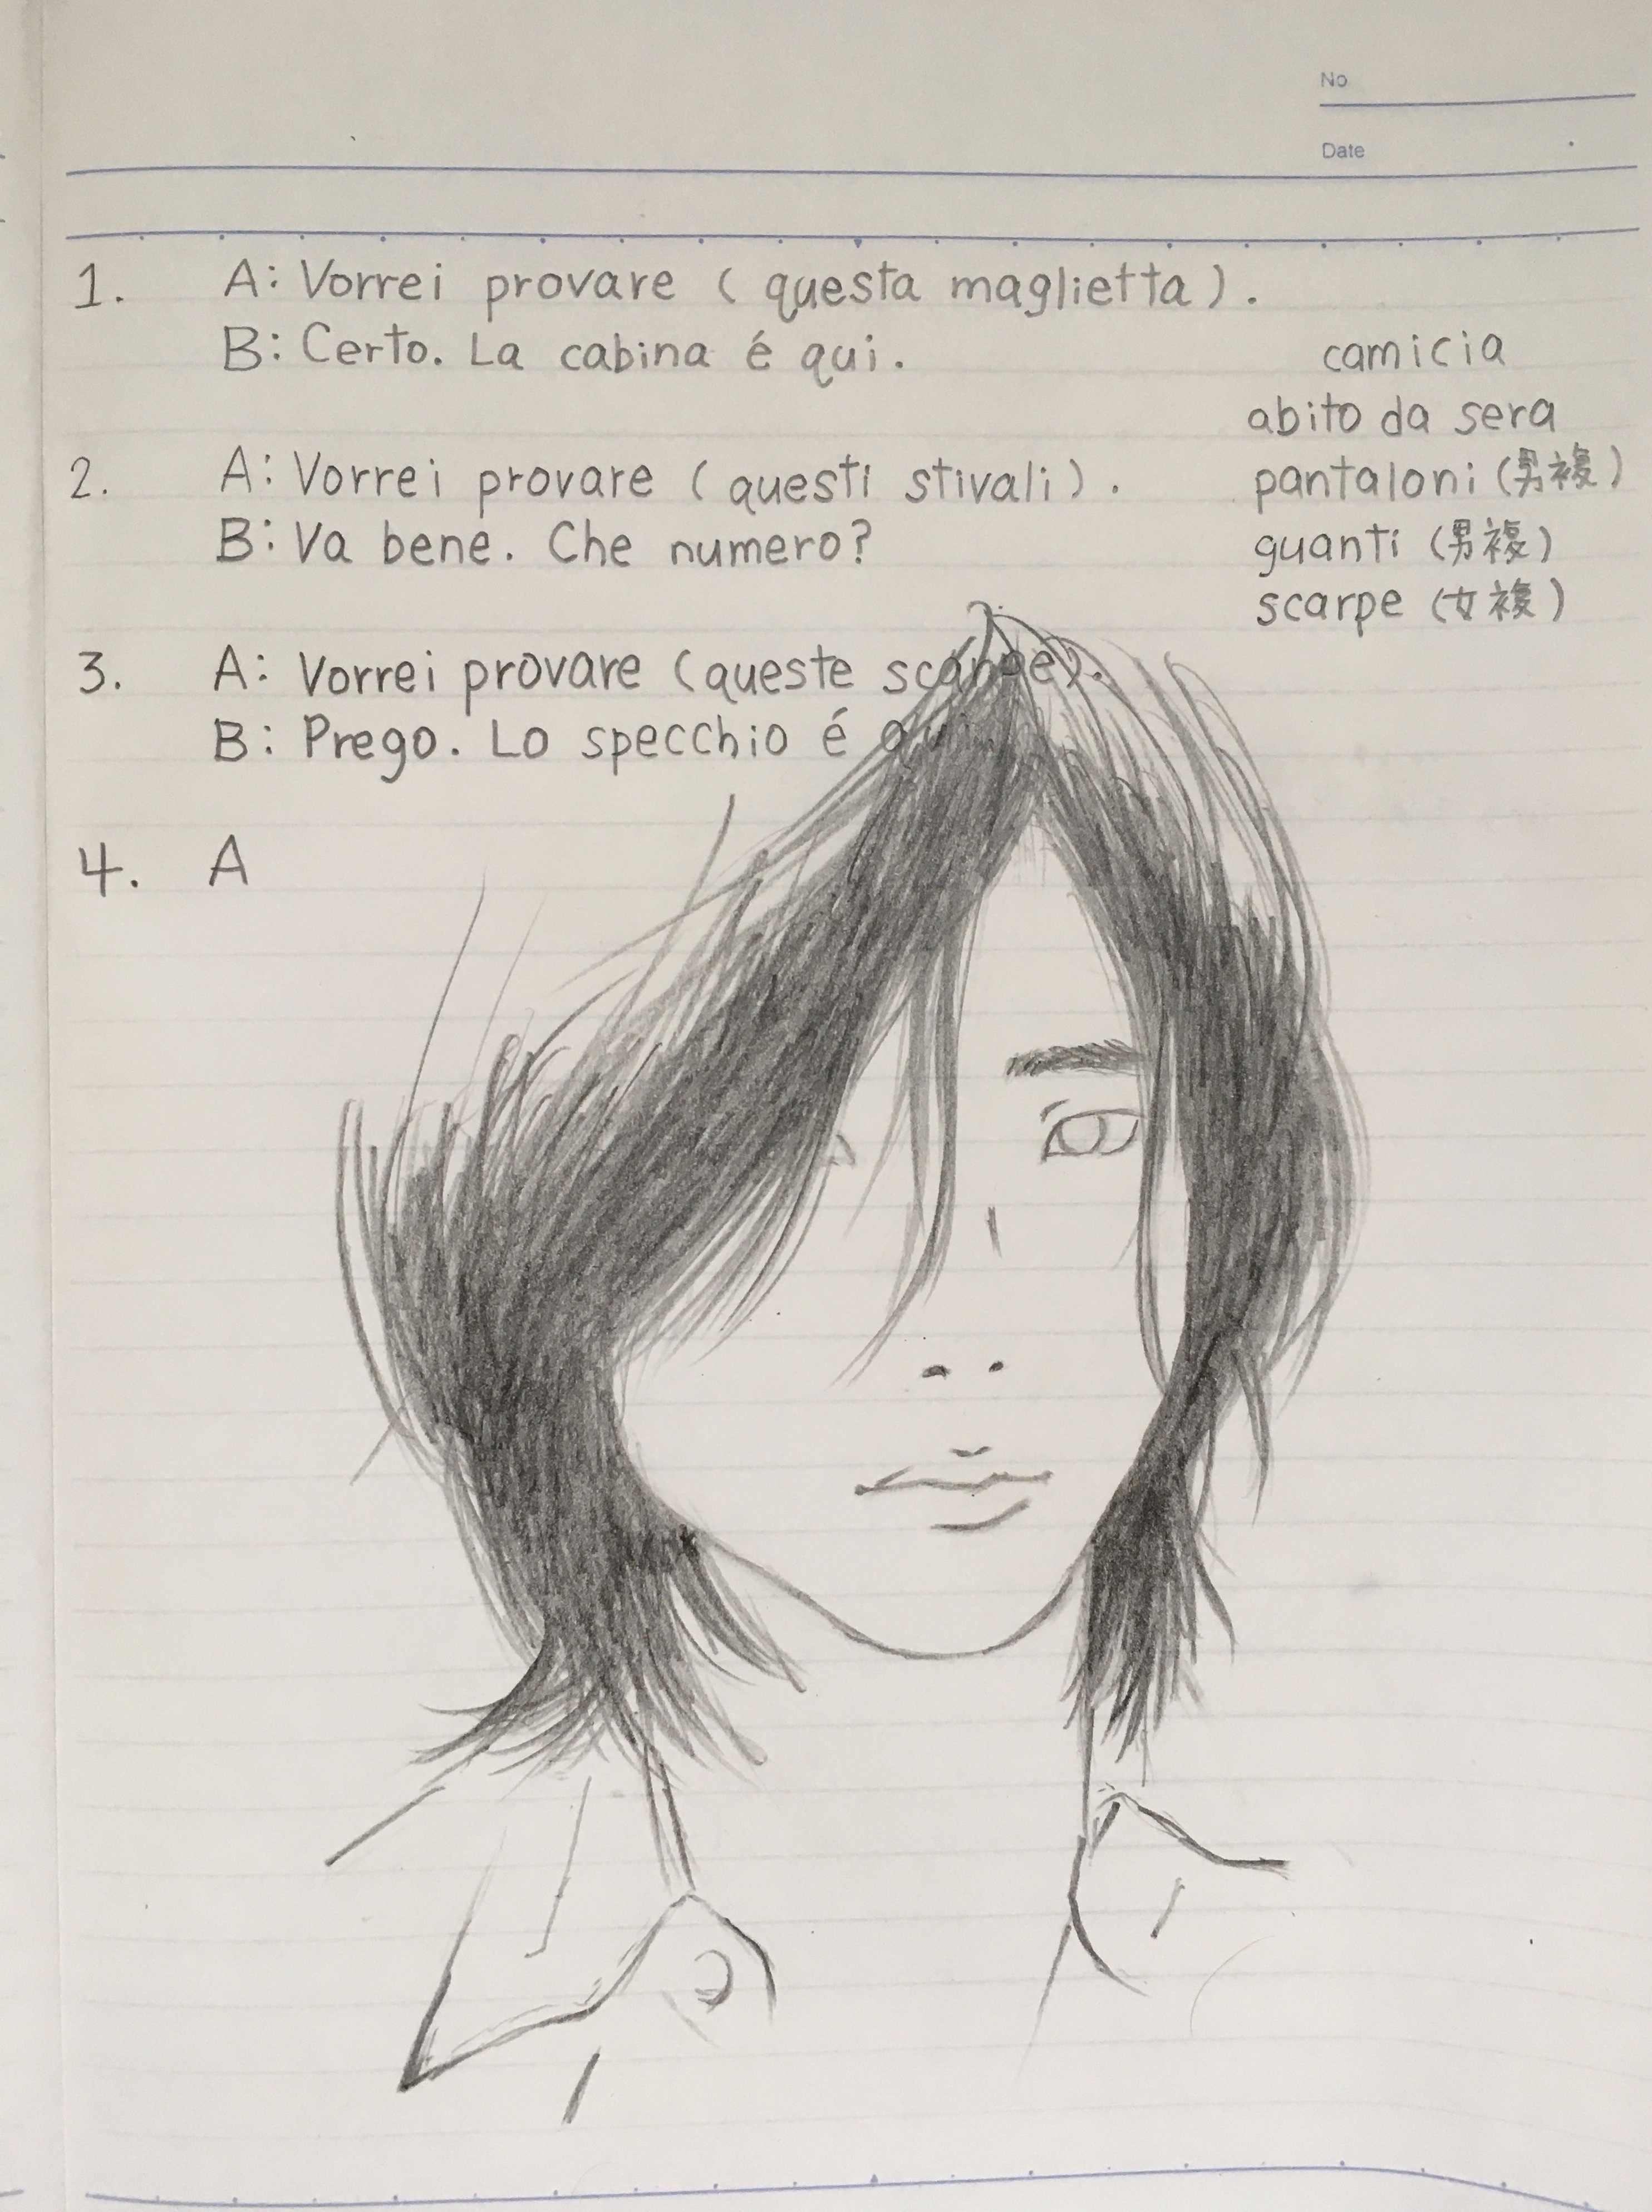 No
Date
1. A: Vorrei provare (questa maglietta).
B: Certo. La cabina é qui.
camicia
abito da sera
2. A: Vorrei provare (questi stivali).
pantaloni (男複)
B: Va bene. Che numero?
guanti (男複)
scarpe (女複)
3. A: Vorrei provare (queste scarpe).
B: Prego. Lo specchio é qui.
4. A